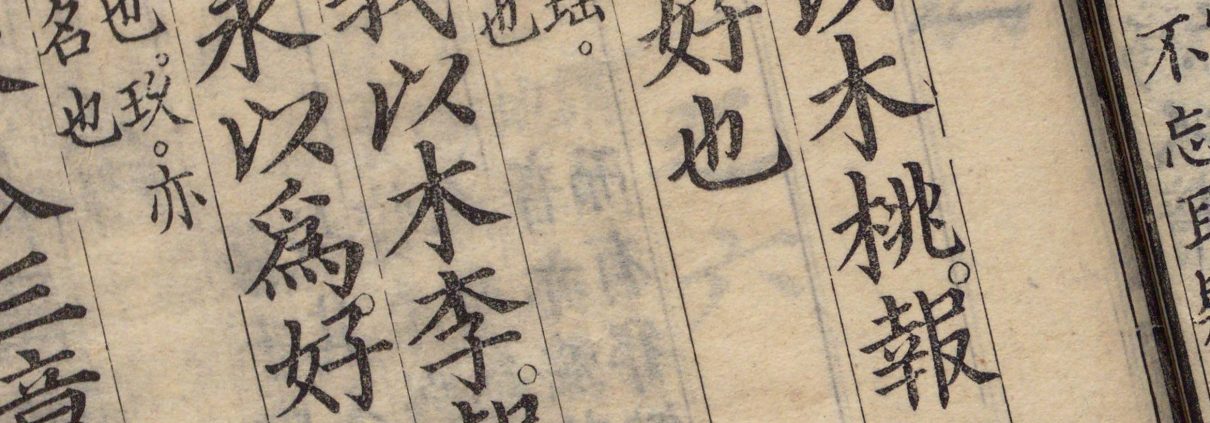 不忘
以木桃。報
好也
也
我以木李。
永以爲好
也。玖。亦
名也
三